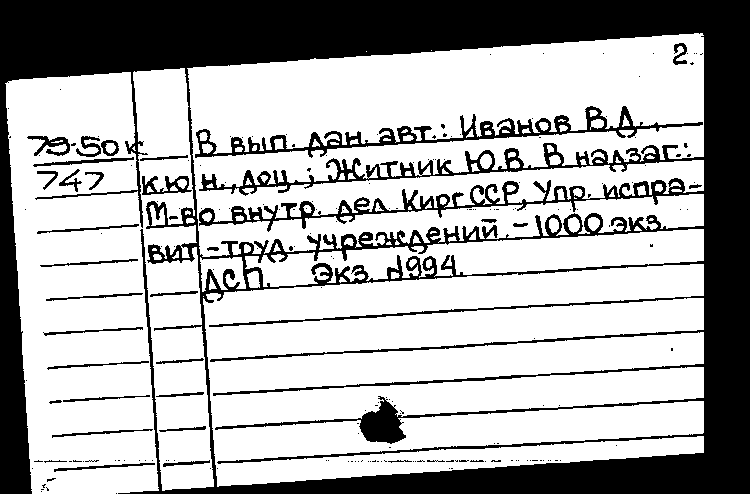 2.
79-50к В вып. дан. авт.: Иванов В.Д.,
747 к.ю н., доц.; Житник Ю.В. В надзаг.:
М-во внутр. дел Кирг ССР, Упр. испра-
вит.-труд. учреждений. - 1000 экз.
ДСП. Экз. №994.